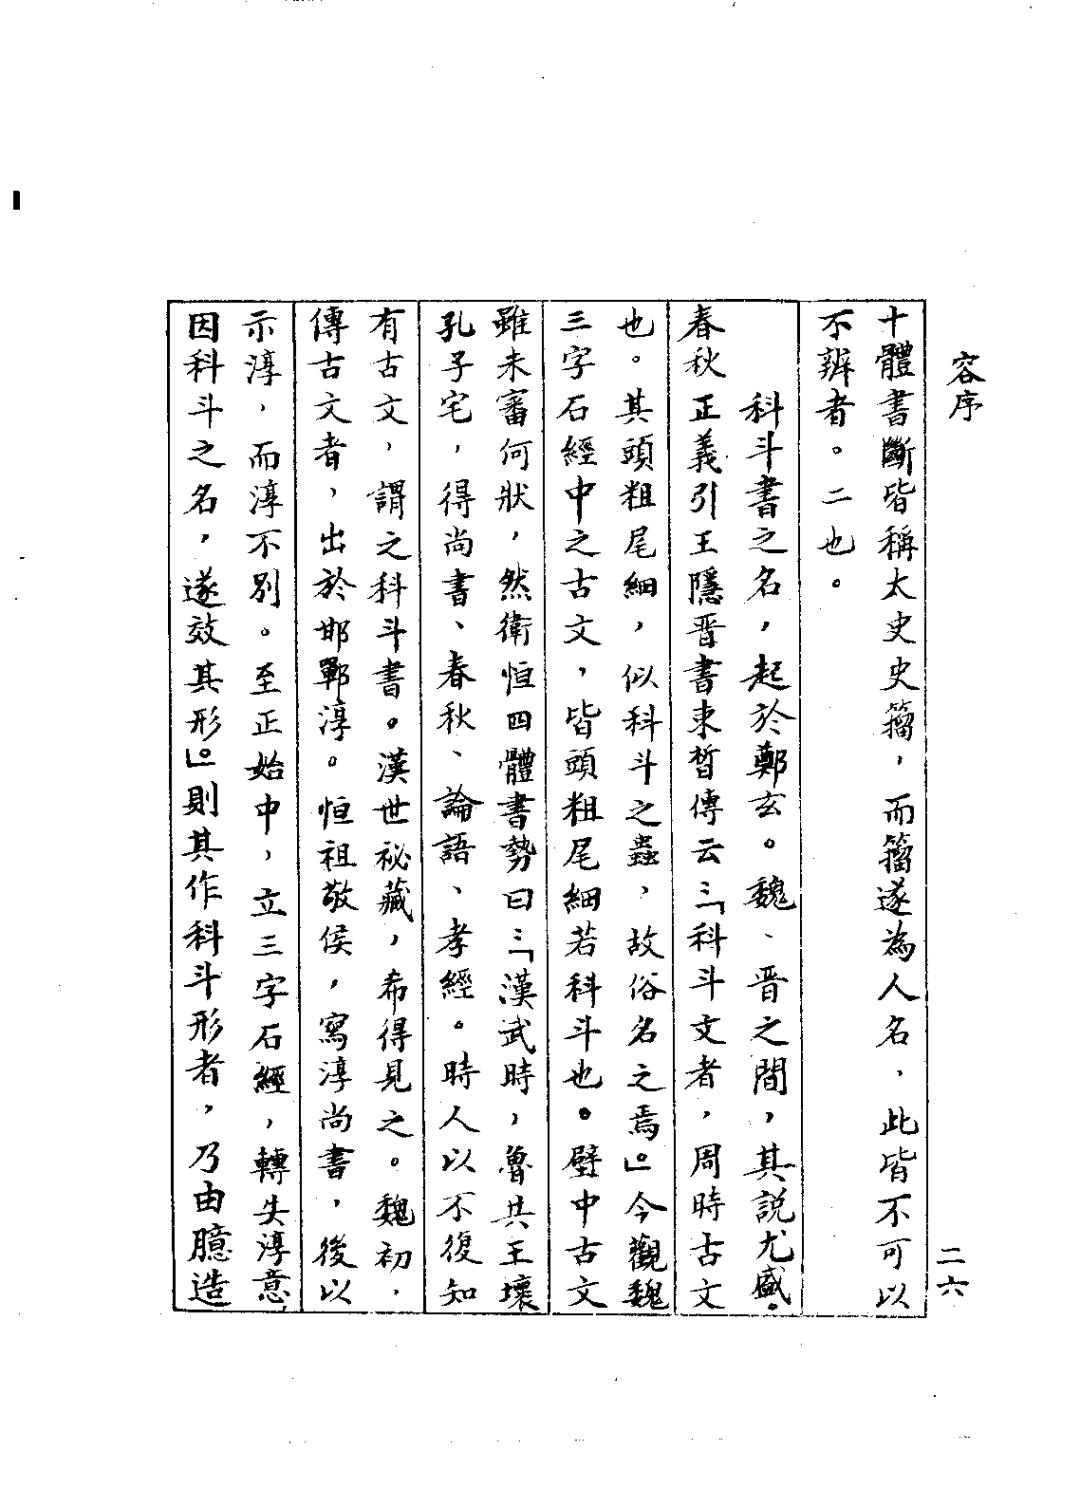 容序
十體書斷皆稱太史史籀，而籀遂為人名，此皆不可以
不辨者。二也。
科斗書之名，起於鄭玄。魏、晉之間，其説尤盛。
春秋正義引王隱晉書束晳傳云：「科斗文者，周時古文
也。其頭粗尾細，似科斗之蟲，故俗名之焉」。今觀魏
三字石經中之古文，皆頭粗尾細若科斗也。壁中古文
雖未審何狀，然衛恒四體書勢曰：「漢武時，魯共王壞
孔子宅，得尚書、春秋、論語、孝經。時人以不復知
有古文，謂之科斗書。漢世祕藏，希得見之。魏初，
傳古文者，出於邯鄲淳。恒祖敬侯，寫淳尚書，後以
示淳，而淳不别。至正始中，立三字石經，轉失淳意，
因科斗之名，遂效其形」。則其作科斗形者，乃由臆造
二六